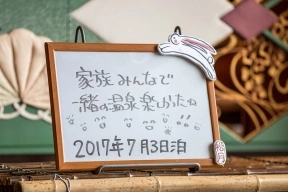 家族みんなで
一緒の温泉楽しかったね
2017年7月3日泊